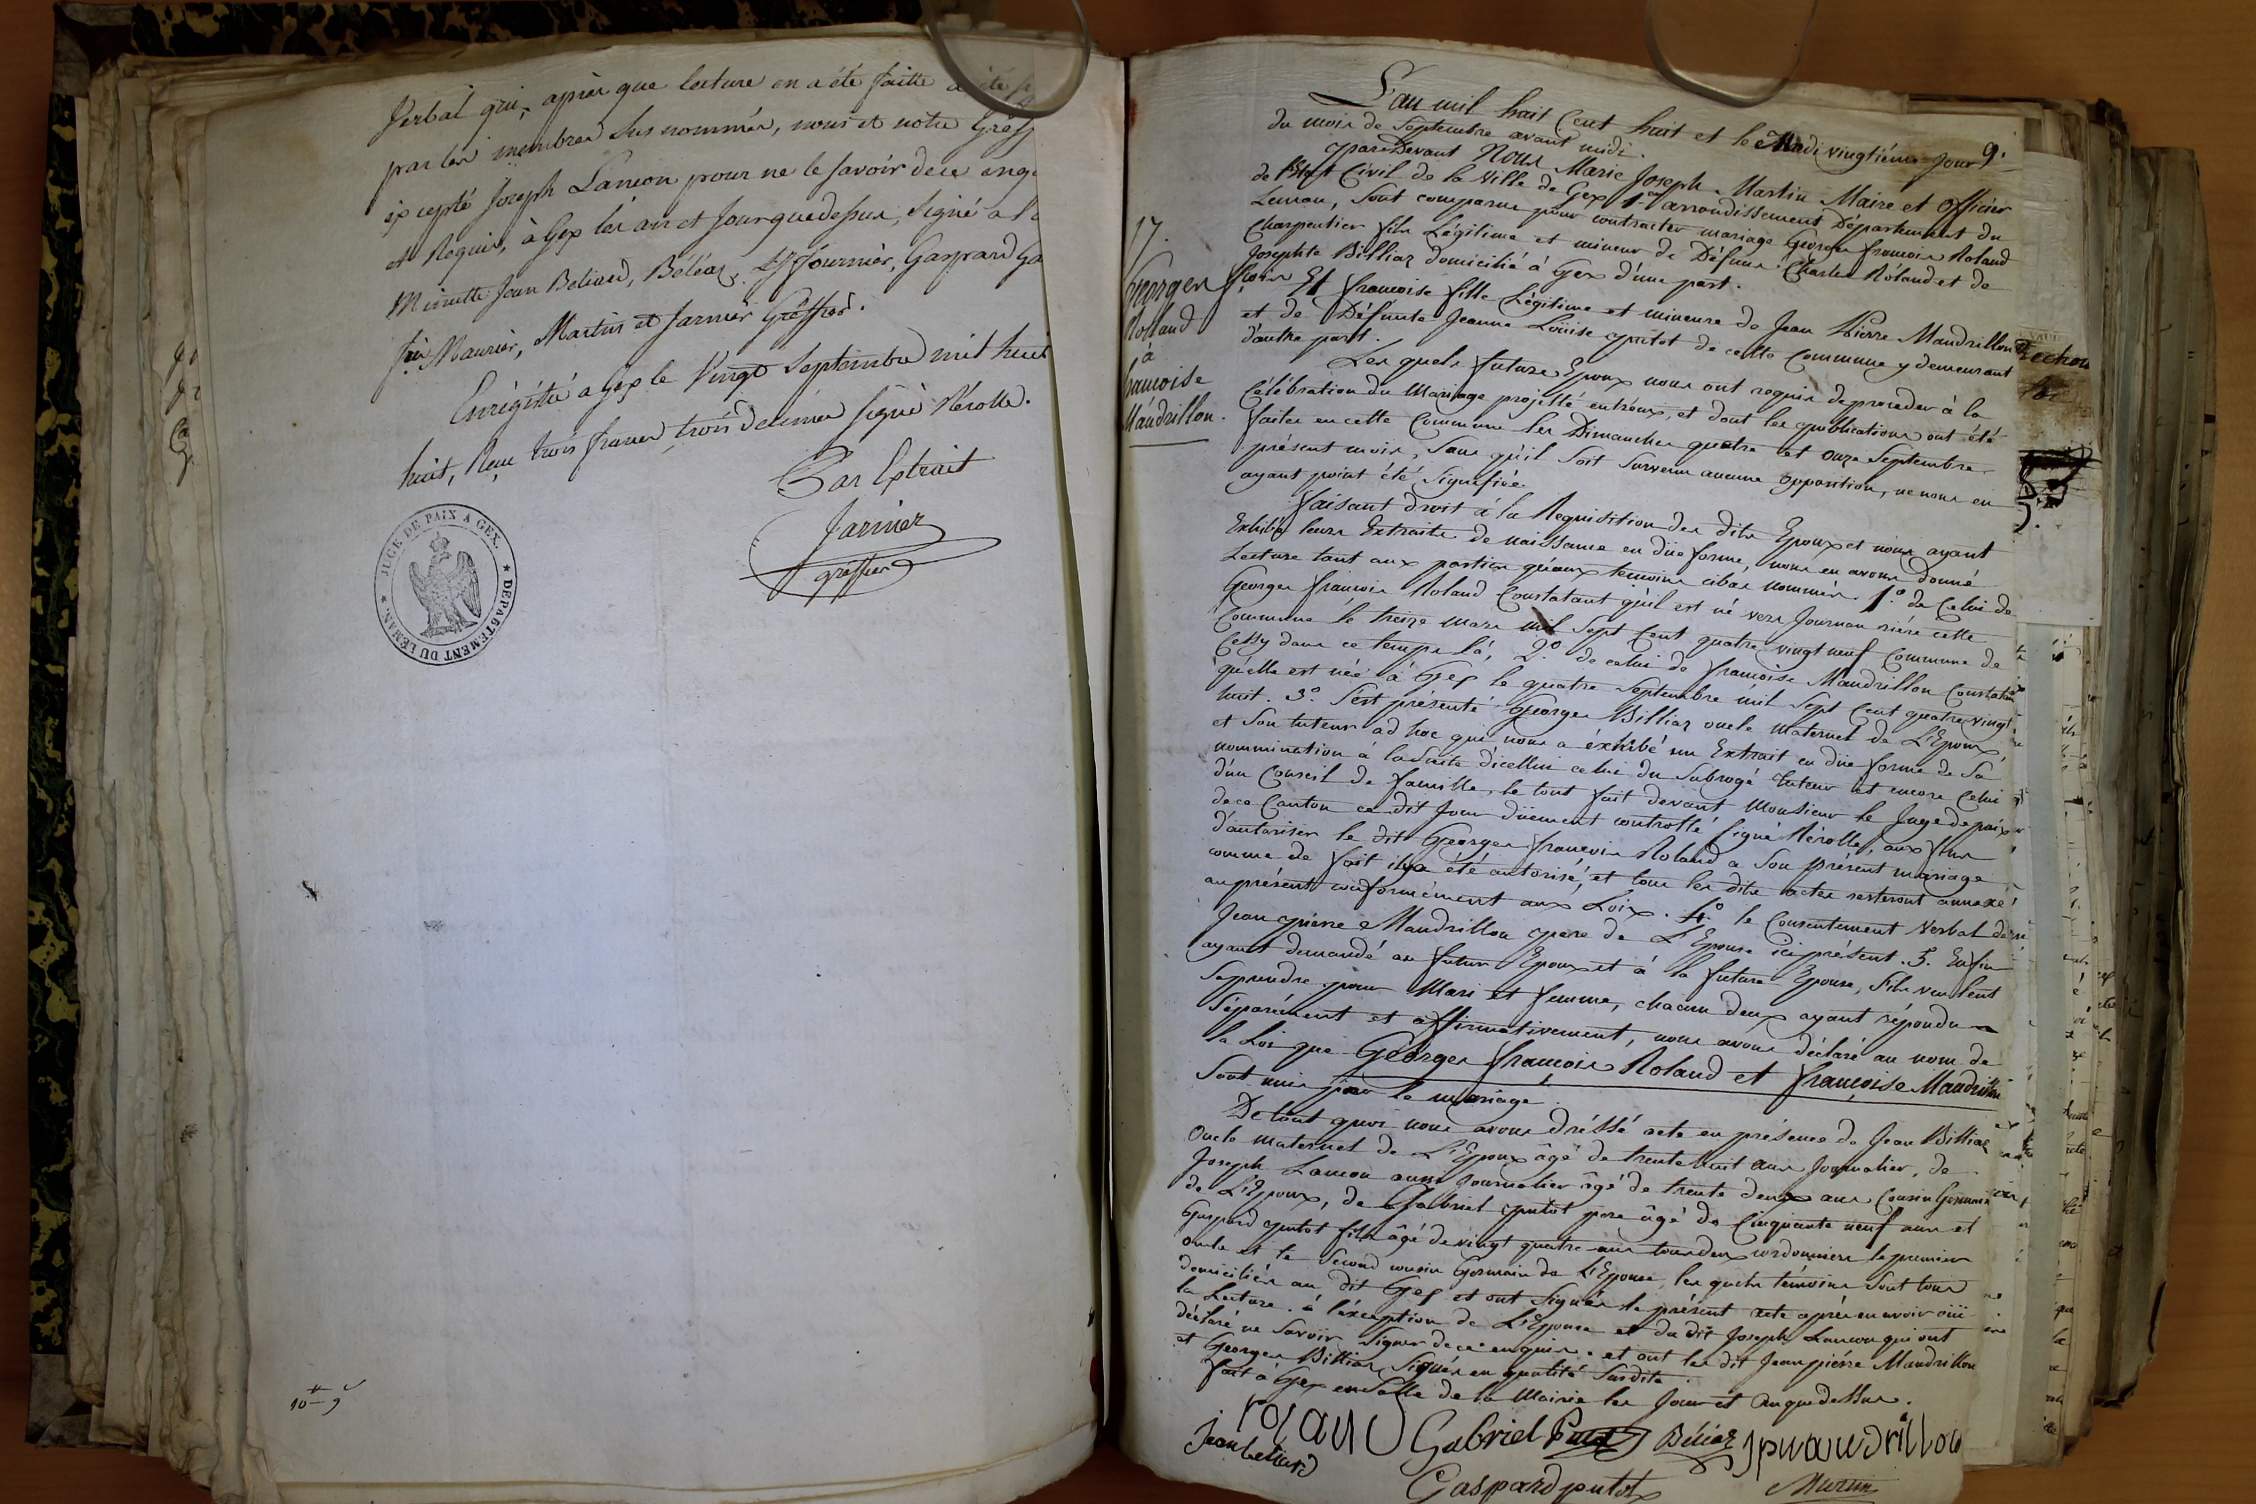 Verbal qui, après que lecture en a été faitte a été
par les membres sus nommés, nous et notre Greff
éxcepté Joseph Lancon pour ne le savoir de ce enqu
et Requis, à Gex les an et Jour que dessus, signé a l'
Minutte Jean Beliard, Béléaz, Fournier, Gaspard
Maurier, Martin et Jarnier Greffier.
Enrégistré a Gex le Vingt Septembre mil huit
huit, Reçu trois francs trois decimes signé Nérolle.
Par Extrait
Jarnier
greffier
JUGE DE PAIX A GEX.
★ DEPARTEMENT DU LEMAN. ★
10 - 9
9.
L'an mil huit Cent huit et le Mardi vingtiéme Jour
du mois de Septembre avant midi.
Pardevant Nous Marie Joseph Martin Maire et officier
de l'Etat Civil de la Ville de Gex 1er arrondissement Département du
Leman, sont comparus pour contracter mariage Georges françois Roland
Charpentier fils Légitime et mineur de Défunt Charles Roland et de
Josephte Billiaz domicilié à Gex d'une part.
Et françoise fille Légitime et mineure de Jean Pierre Maudrillon
et de Défunte Jeanne Loüise putot de cette Commune y demeurant
d'autre part.
17.
Georges
Rolland
à
francoise
Maudrillon.
Les quels futurs Epoux nous ont requis de proceder à la
Célébration du Mariage projetté entr'eux, et dont les publications ont été
faites en cette Commune les Dimanches quatre et onze Septembre
présent mois, sans qu'il soit survenu aucune opposition, ne nous en
ayant point été signifiée.
faisant droit à la Requisition des dits Epoux et nous ayant
Exhibé leurs Extraits de naissance en düe forme, nous en avons donné
Lecture tant aux parties qu'aux temoins cibas nommés. 1.° de Celui de
Georges françois Roland Constatant qu'il est né vers Journan riére cette
Commune le treize mars mil Sept Cent quatre vingt neuf Commune de
Cessy dans ce temps là, 2.° de celui de françoise Maudrillon Constatant
qu'elle est née à Gex le quatre Septembre mil Sept Cent quatre vingt
huit. 3.° S'est présenté Georges Billiaz oncle maternel de L'Epoux
et Son tuteur ad hoc qui nous a éxhibé un Extrait en düe forme de Sa
nommination à la Suite d'icellui celui du Subrogé tuteur et encore Celui
d'un Conseil de famille, le tout fait devant Monsieur le Juge de paix
de ce Canton ce dit Jour düement controllé signé Nérolle, aux fins
d'autoriser le dit Georges françois Roland a Son présent mariage
comme de fait il a été autorisé, et tous les dits actes resteront annexé
au présent conformément aux Loix. 4.° le Consentement Verbal de
Jean pierre Maudrillon pere de L'Epouse ici présent. 5. Enfin
ayant demandé au futur Epoux et à la future Epouse, s'ils veulent
se prendre pour Mari et femme, chacun deux ayant répondu
Séparément et affirmativement, nous avons déclaré au nom de
la Loi que Georges françois Roland et françoise Maudrillon
Sont unis par le mariage.
De tout quoi nous avons dréssé acte en présence de Jean Billiaz
Oncle maternel de L'Epoux âgé de trente huit ans Journalier, de
Joseph Lancon aussi Journalier âgé de trente deux ans Cousin Germain
de L'Epoux, de Gabriel putot pere âgé de Cinquante neuf ans et
Gaspard putot fils âgé de vingt quatre ans tous deux cordonniers le premier
oncle et le Second cousin Germain de L'Epouse, les quels témoins Sont tous
domiciliés au dit Gex et ont Signés le présent acte aprés en avoir oüi
la Lecture. à l'éxception de L'Epouse et du dit Joseph Lancon qui ont
déclaré ne Savoir Signer de ce enquis. et ont les dit Jean piérre Maudrillon
et Georges Billiaz Signés en qualité Susdite.
fait à Gex en Salle de la Mairie les Jour et an que dessus.
roland Gabriel Putot Béliaz jpmaudrillon
Jean beliard
Gaspard putot Martin